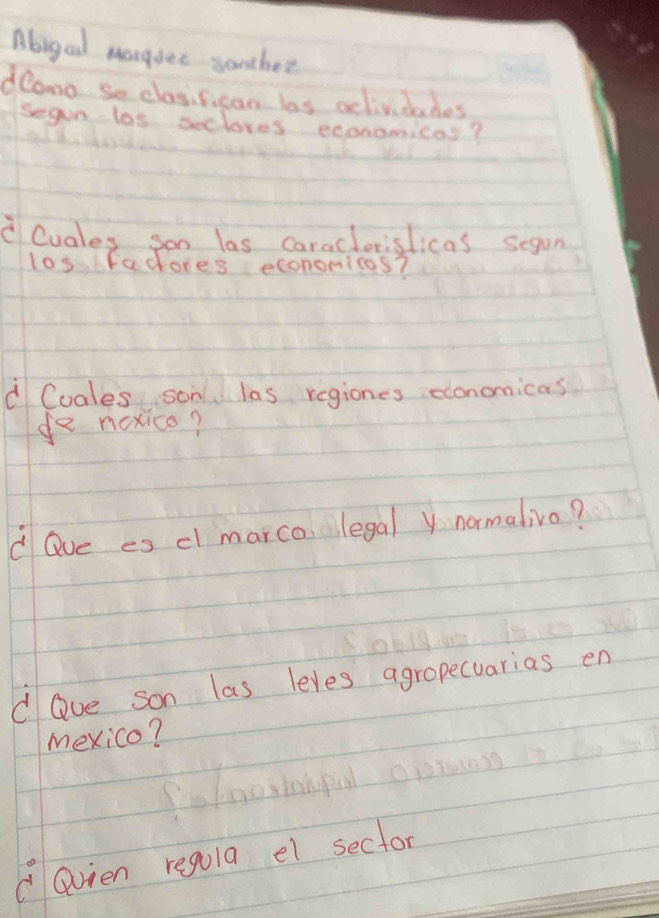 Abigail Marquez sanchez
¿Como se clasifican las actividades
segun los sectores economicos?
¿Cuales son las caracteristicas segun
los factores economicos?
¿Cuales son las regiones economicas
de mexico?
¿Que es el marco legal y normativo?
¿Que son las leyes agropecuarias en
mexico?
¿Quien regula el sector